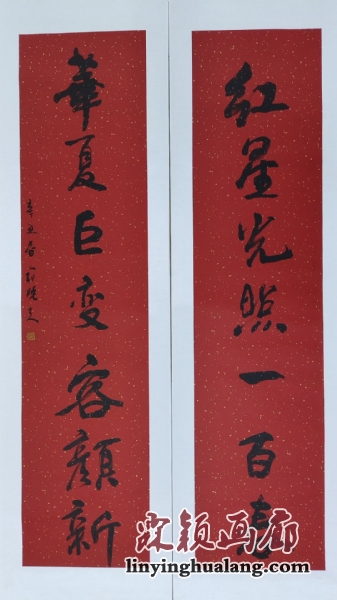 红星光照一百春
華夏巨变容颜新
辛丑春
霖颖画廊
linyinghualang.com